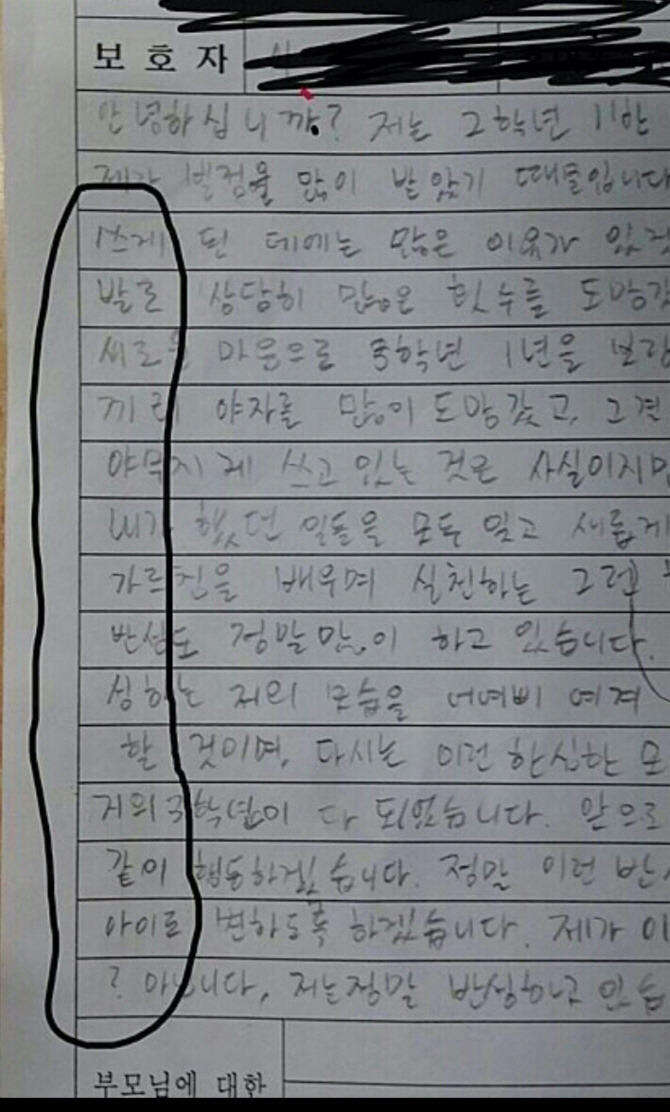 보호자
안녕하십니까? 저는 2학년 11반
제가 벌점을 많이 받았기 때문입니다
쓰게 된 데에는 많은 이유가 있겠
발로 상당히 많은 횟수를 도망갔
새로운 마음으로 3학년 1년을 보람
끼리 야자를 많이 도망갔고, 그 결
야무지게 쓰고 있는 것은 사실이지만
내가 했던 일들을 모두 잊고 새롭게
가르침을 배우며 실천하는 그런
반성도 정말 많이 하고 있습니다.
성하는 저의 모습을 어여삐 여겨
할 것이며, 다시는 이런 한심한 모
거의 3학년이 다 되었습니다. 앞으로
같이 행동하겠습니다. 정말 이런 반
아이로 변하도록 하겠습니다. 제가 이
? 아닙니다, 저는 정말 반성하고 있습
부모님에 대한